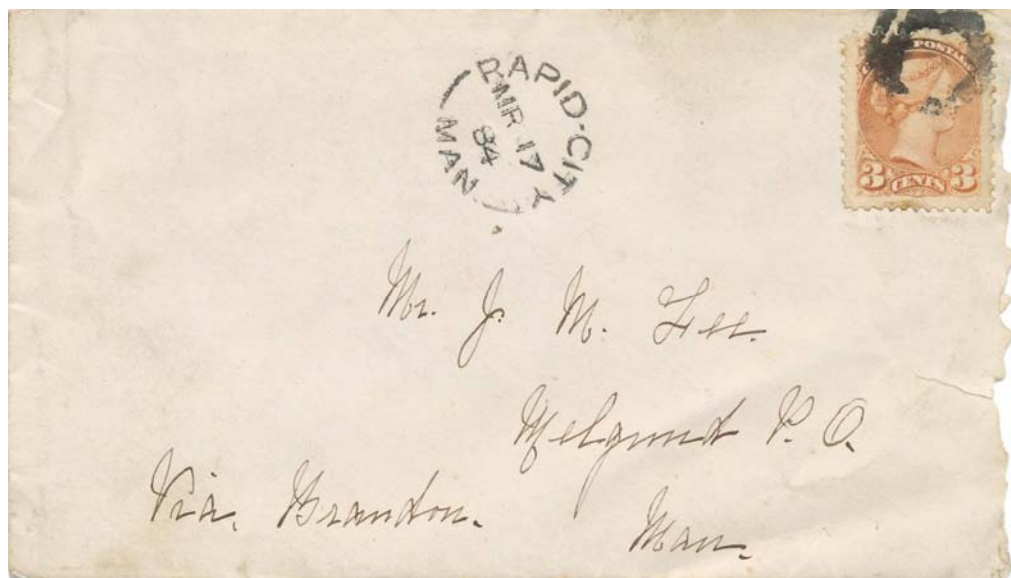 RAPID-CITY
MR 17
84
MAN
POSTAGE
3 CENTS 3
Mr. J. M. Fee.
Melgund P. O.
Via. Brandon.
Man.